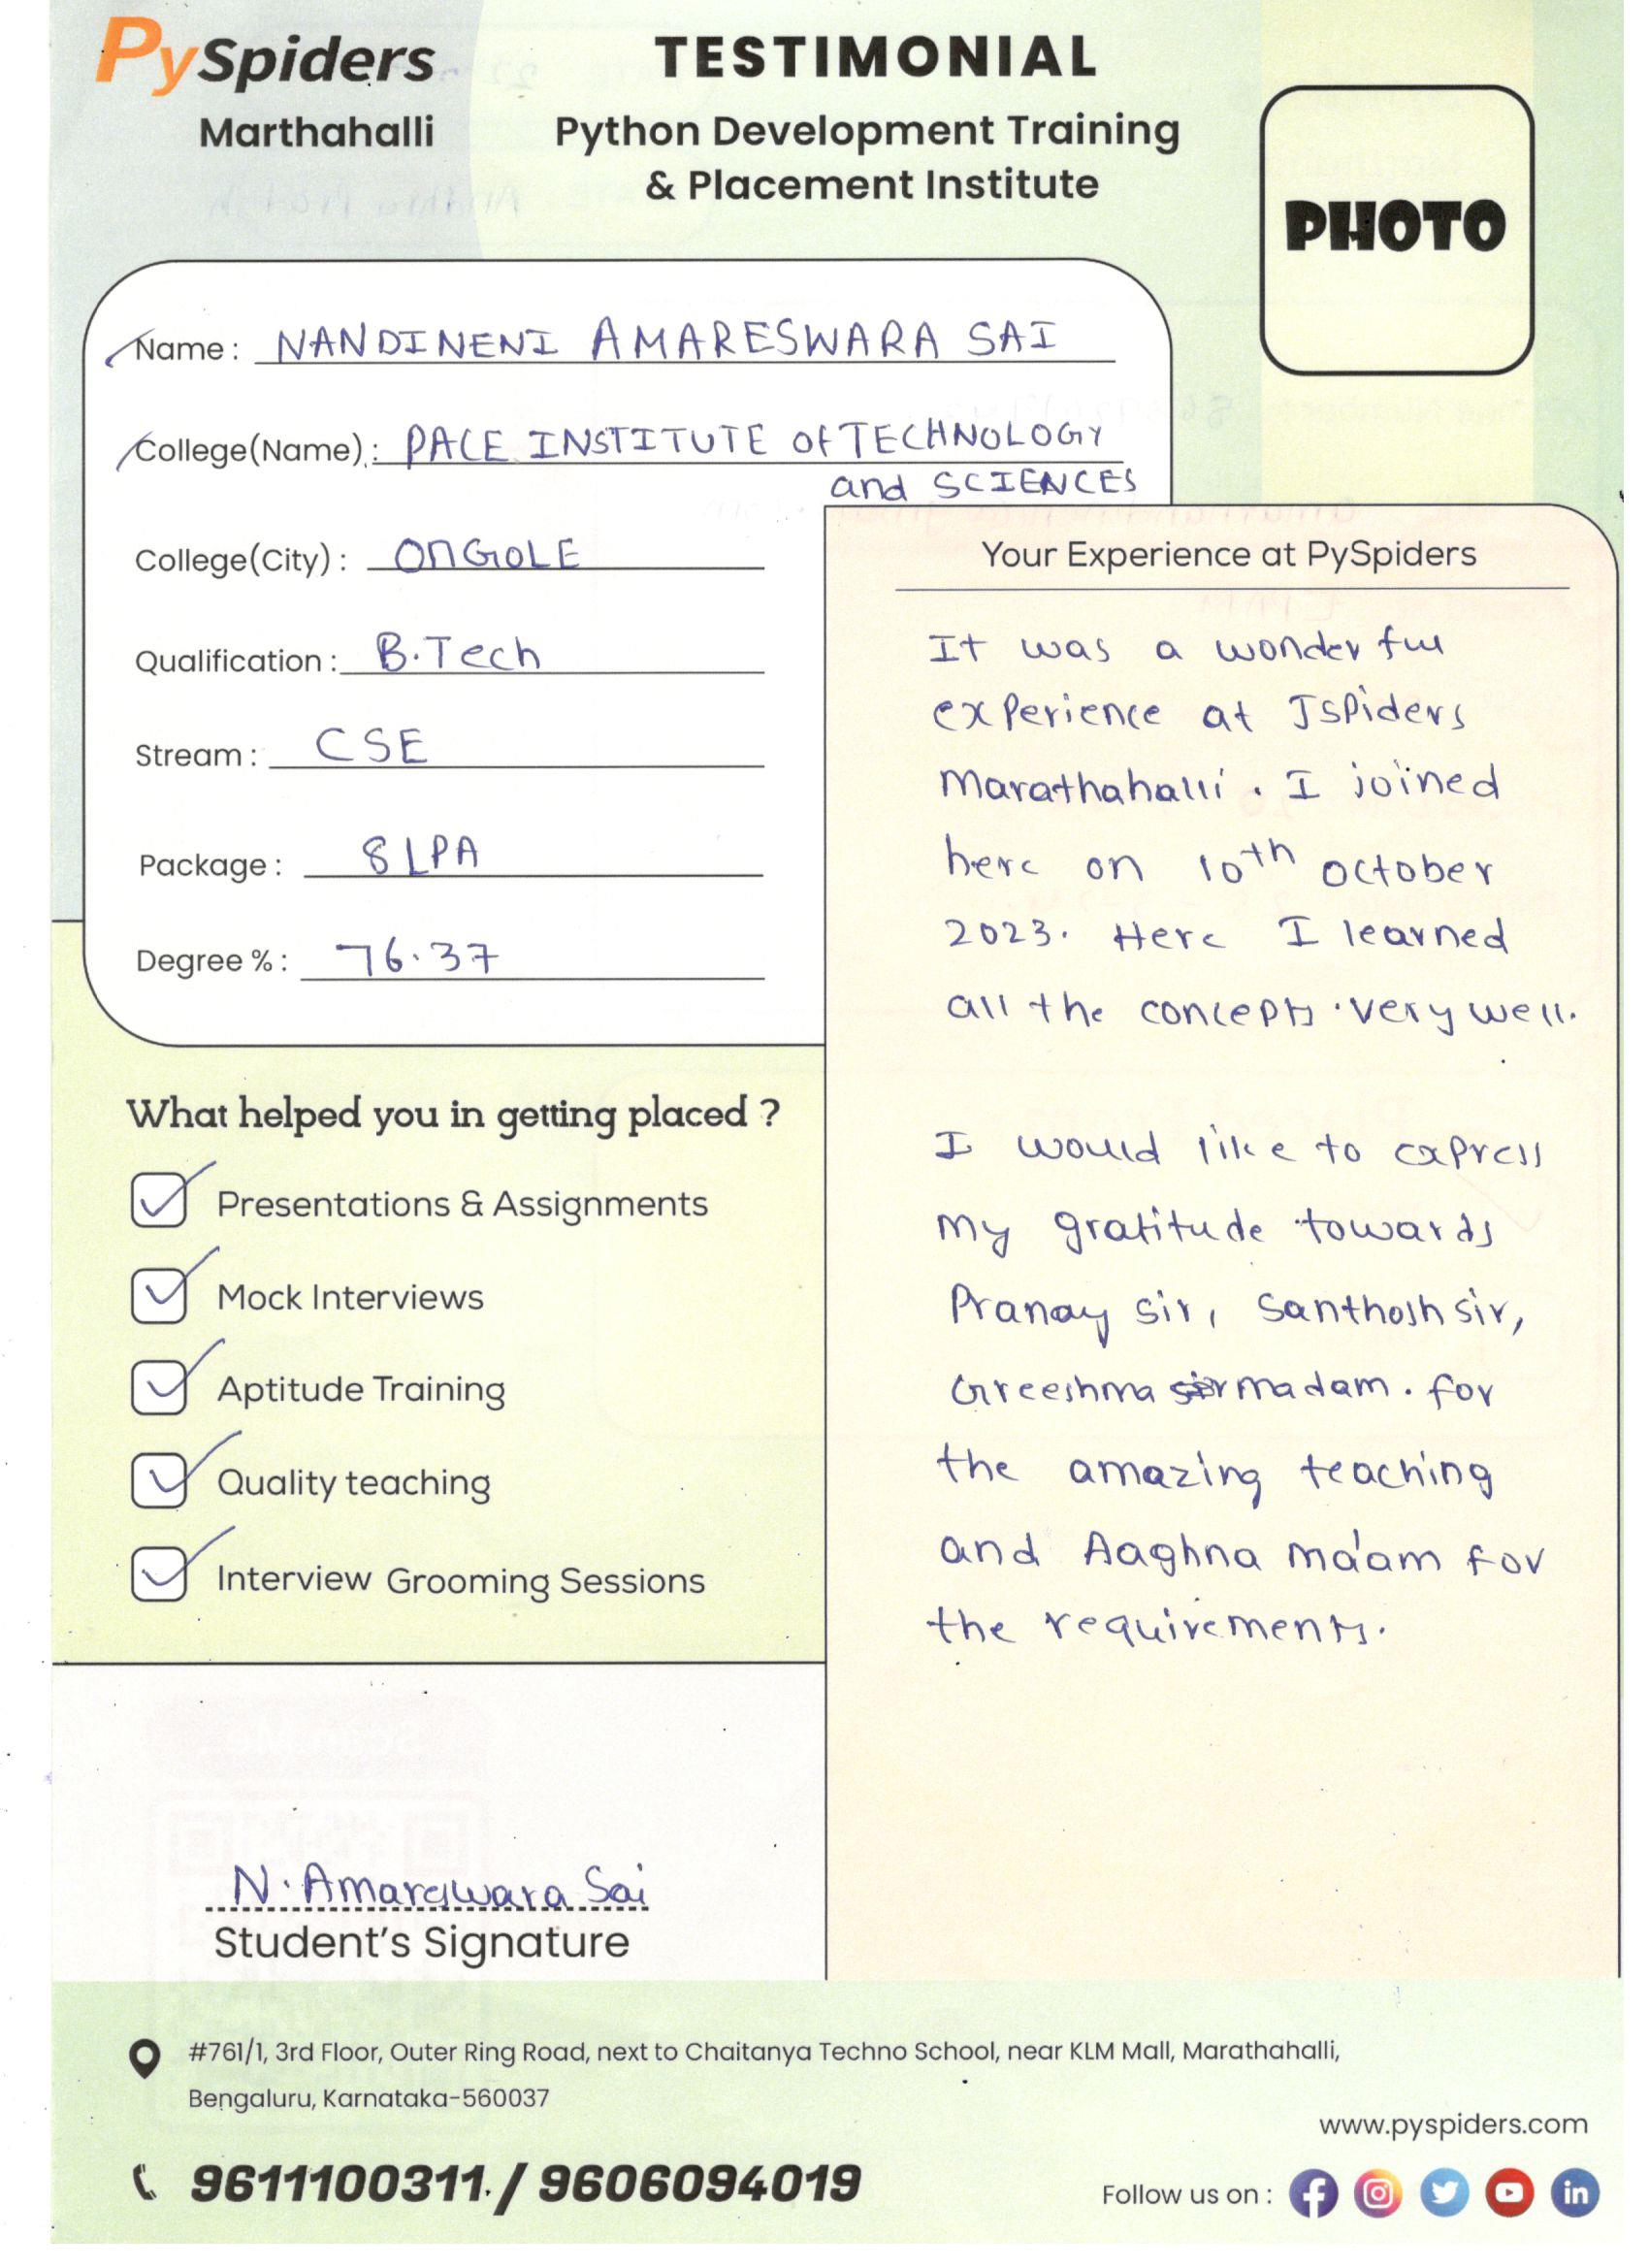 PySpiders
Marthahalli
TESTIMONIAL
Python Development Training
& Placement Institute
PHOTO
Name : NANDINENI AMARESWARA SAI
College(Name) : PACE INSTITUTE Of TECHNOLOGY
and SCIENCES
College(City) : ONGOLE
Qualification : B.Tech
Stream : CSE
Package : 8 LPA
Degree % : 76.37
What helped you in getting placed ?
Presentations & Assignments
Mock Interviews
Aptitude Training
Quality teaching
Interview Grooming Sessions
N. Amareswara Sai
Student's Signature
Your Experience at PySpiders
It was a wonderful
experience at JSpiders
Marathahalli. I joined
here on 10th October
2023. Here I learned
all the concepts very well.
I would like to express
my gratitude towards
Pranay sir, Santhosh sir,
Greeshma madam. for
the amazing teaching
and Aaghna ma'am for
the requirements.
#761/1, 3rd Floor, Outer Ring Road, next to Chaitanya Techno School, near KLM Mall, Marathahalli,
Bengaluru, Karnataka-560037
www.pyspiders.com
9611100311 / 9606094019
Follow us on :